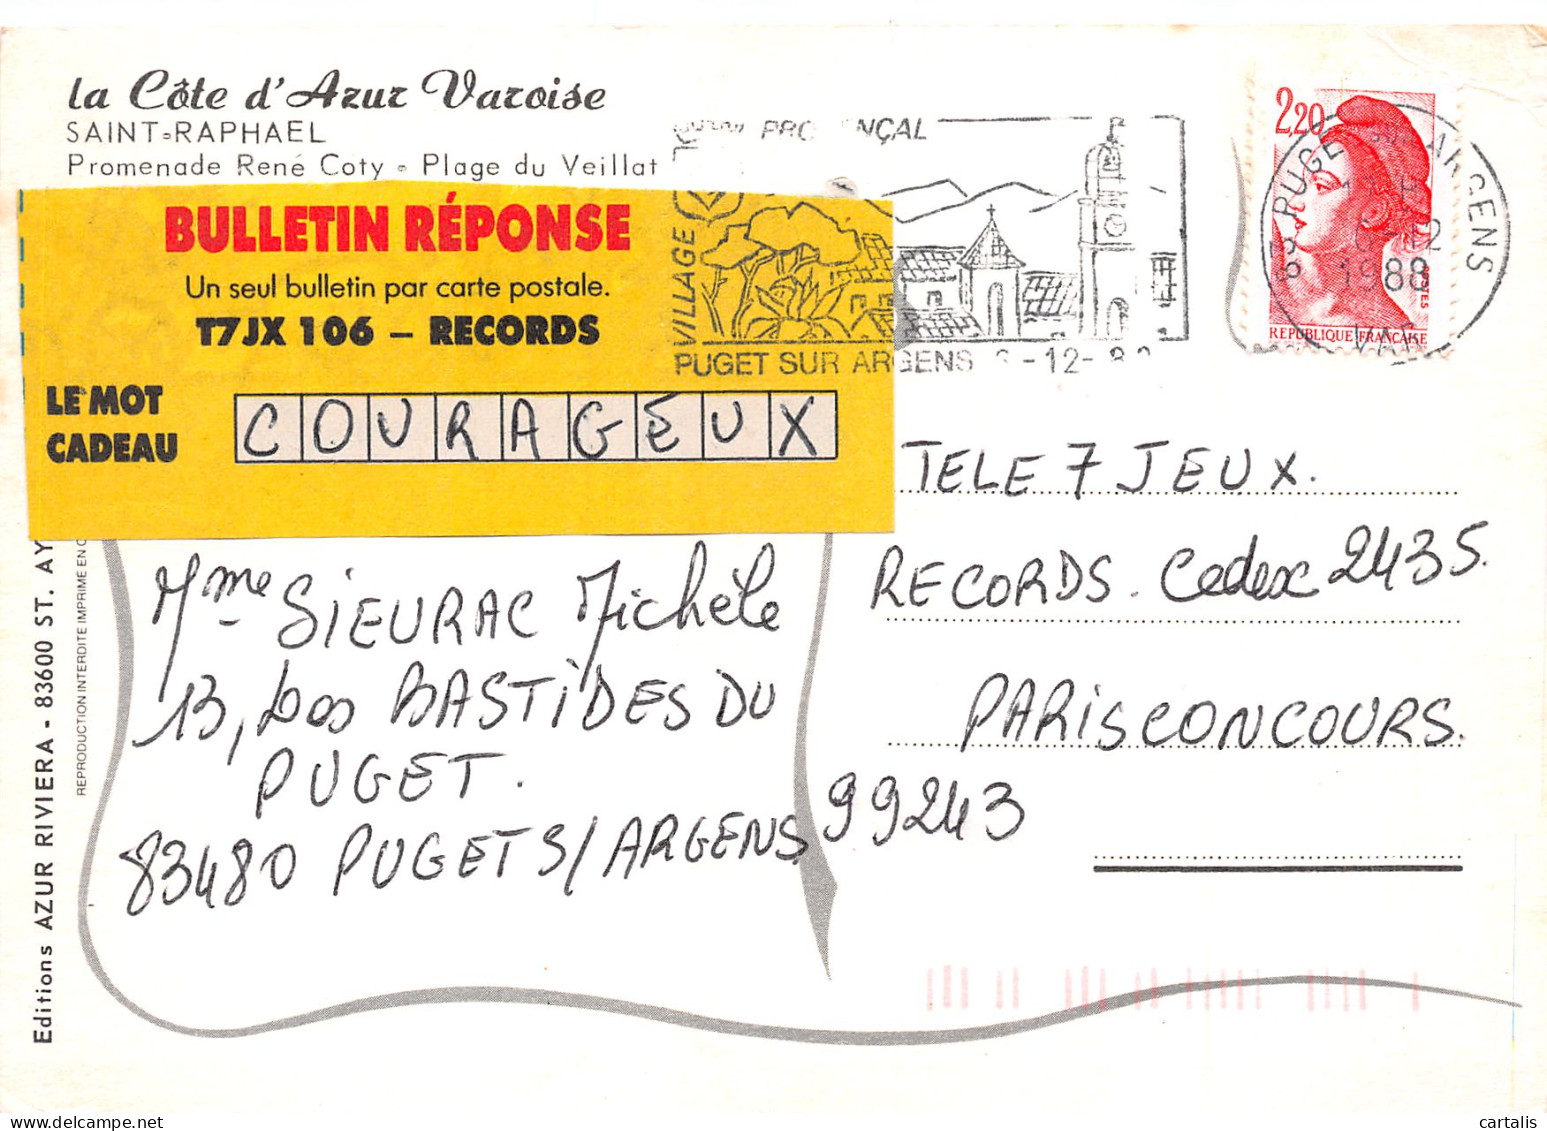 la Côte d'Azur Varoise
SAINT-RAPHAEL
Promenade René Coty - Plage du Veillat
BULLETIN RÉPONSE
Un seul bulletin par carte postale.
T7JX 106 – RECORDS
LE MOT
CADEAU
COURAGEUX
VILLAGE
PUGET SUR ARGENS -12-
2,20
REPUBLIQUE FRANCAISE
83 PUGET ARGENS
1988
VAR
TELE 7 JEUX.
RECORDS. Cedex 2435.
PARIS CONCOURS.
99243
Mme SIEURAC Michèle
13, Les BASTIDES DU
PUGET.
83480 PUGET S/ARGENS
Editions AZUR RIVIERA - 83600 ST. AY
REPRODUCTION INTERDITE IMPRIME EN C
cartalis